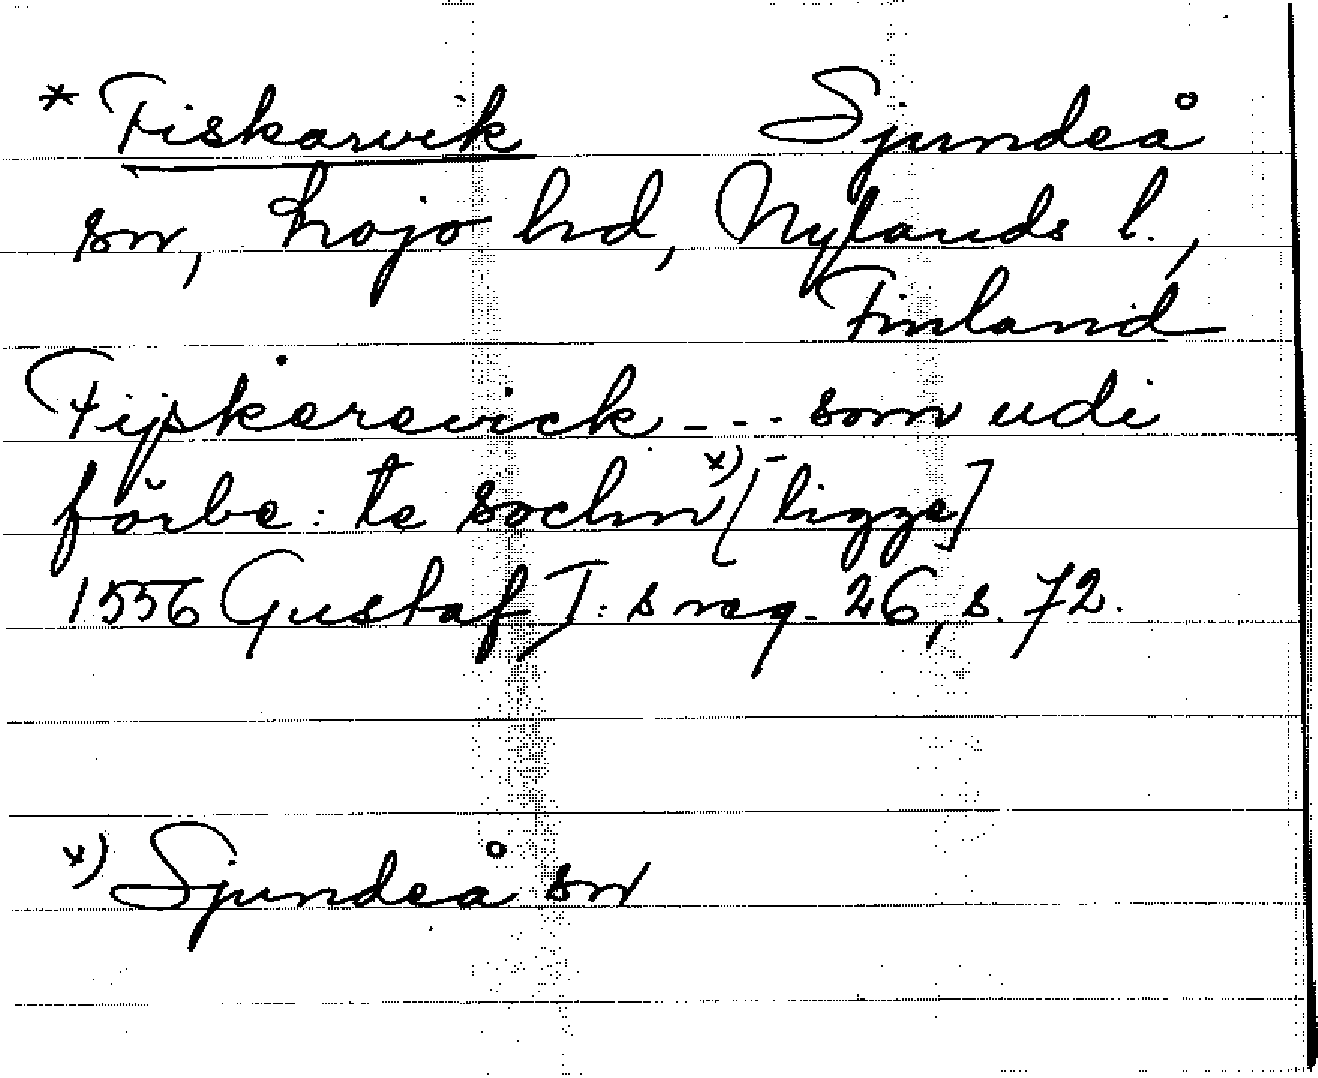 * Fiskarvik Sjundeå
sn, Lojo hd, Nylands l.,
Finland
Fijskarevick --- som udi
förbe: te sochn x) [ligge]
1556 Gustaf I: s reg. 26, s. 72.
x) Sjundeå sn